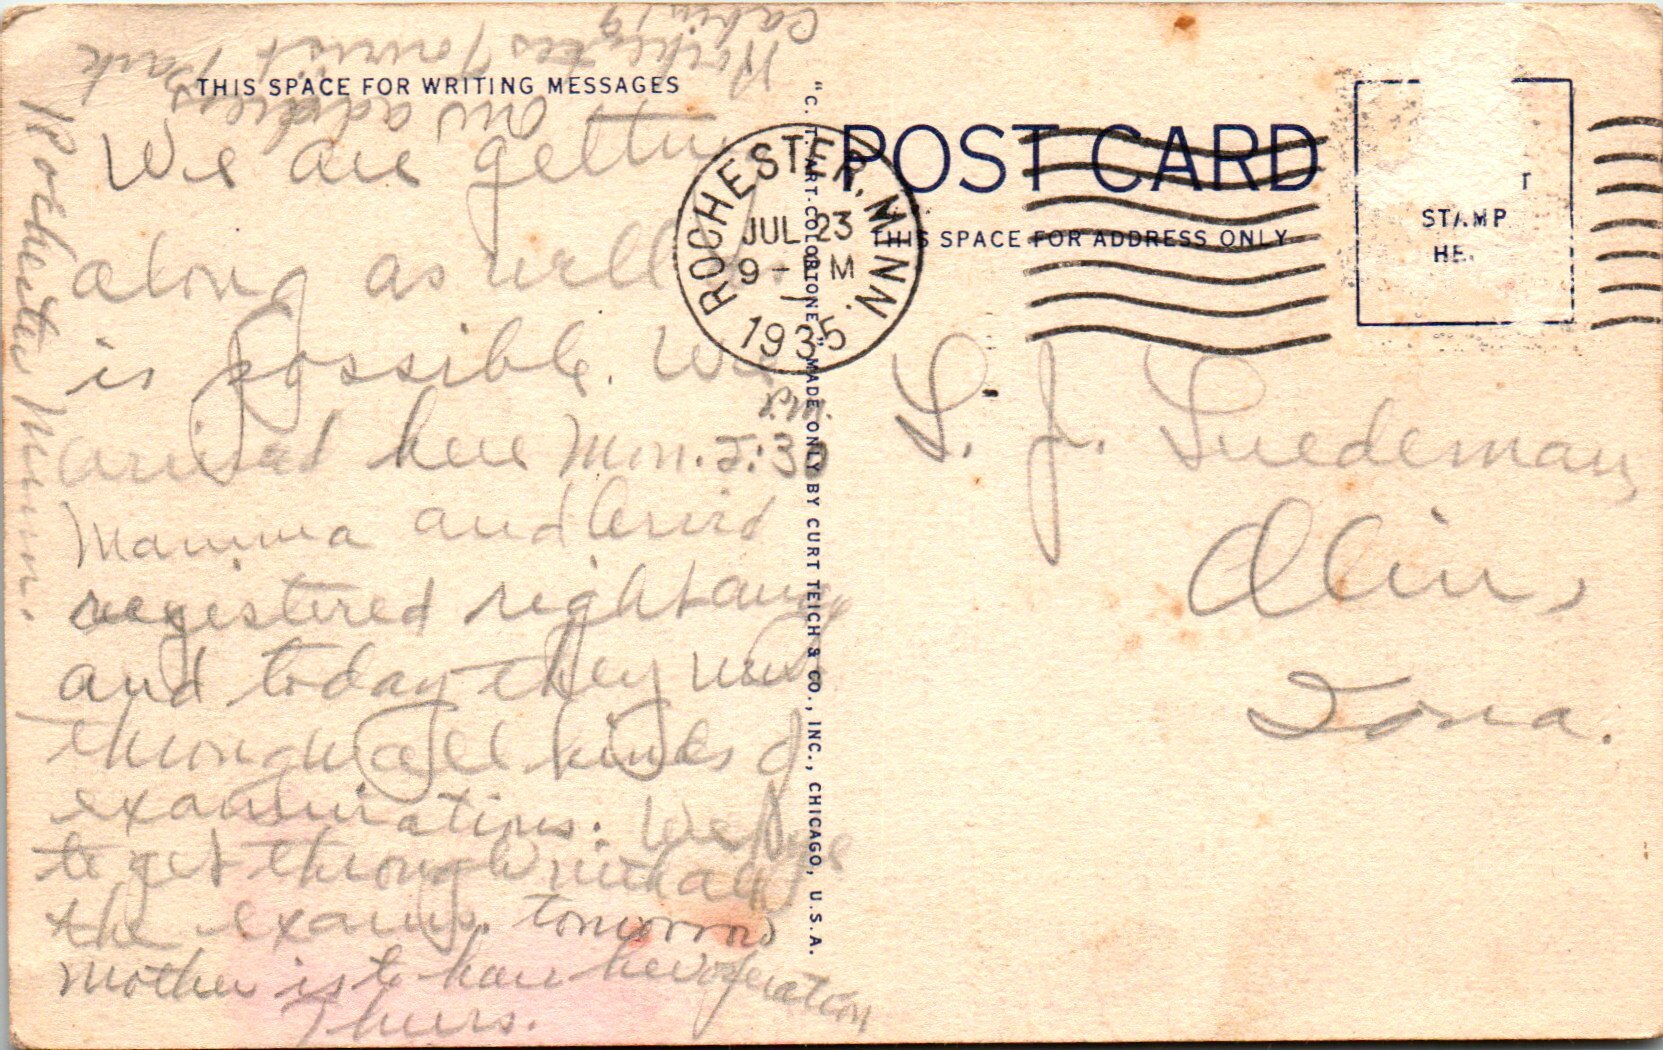 THIS SPACE FOR WRITING MESSAGES
We are getting
along as well as
is possible. We
arrived here Mon. 2:30
Mamma and
registered right away
and today they went
through all kinds of
examinations. We hope
to get through with all
the exams. tomorrow
Mother is to have her operation
Thurs.
our address
Tourist Park
Cabin 19
Rochester Minn.
"C. T. ART-COLORTONE" MADE ONLY BY CURT TEICH & CO., INC., CHICAGO, U.S.A.
ROCHESTER, MINN.
JUL 23
9 - M
1935
POST CARD
THIS SPACE FOR ADDRESS ONLY
STAMP
HE
L. J. Luedeman,
Olin,
Iowa.